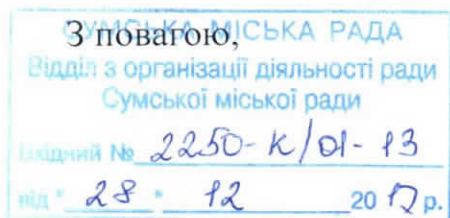 З повагою,
СУМСЬКА МІСЬКА РАДА
Відділ з організації діяльності ради
Сумської міської ради
Вхідний № 2250-К/01-13
від " 28 " 12 2017 р.